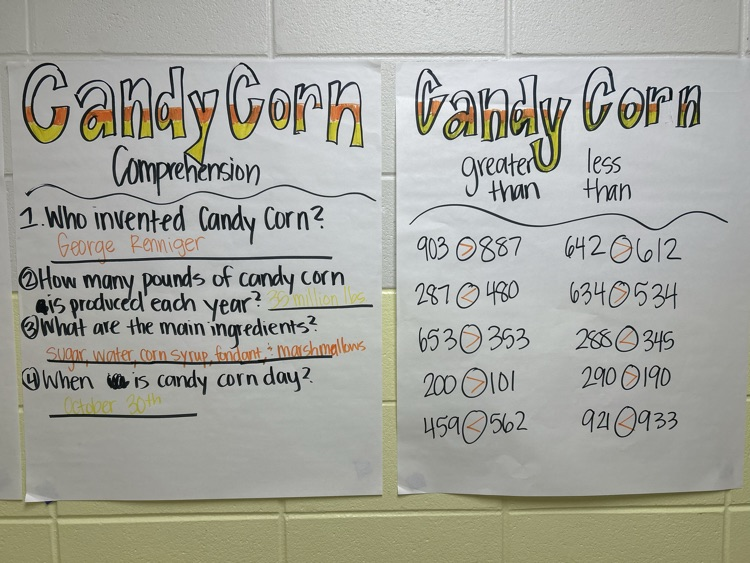 Candy Corn
Comprehension
1. Who invented Candy Corn?
George Renniger
② How many pounds of candy corn
is produced each year? 35 million lbs
③ What are the main ingredients?
sugar, water, corn syrup, fondant, & marshmallows
④ When is candy corn day?
October 30th
Candy Corn
greater than
less than
903 > 887
642 > 612
287 < 480
634 > 534
653 > 353
288 < 345
200 > 101
290 > 190
459 < 562
921 < 933